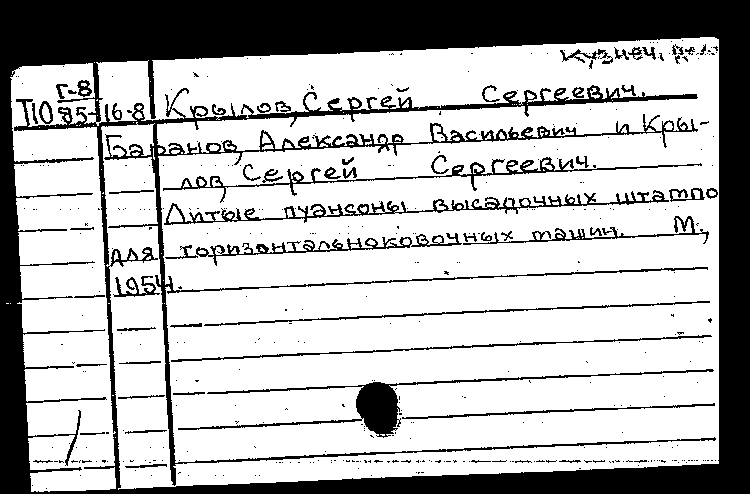 Кузнеч. дело
Г-8
П10 85-16-8 Крылов, Сергей Сергеевич.
Баранов, Александр Васильевич и Кры-
лов, Сергей Сергеевич.
Литые пуансоны высадочных штампо
для горизонтальноковочных машин. М.,
1954.